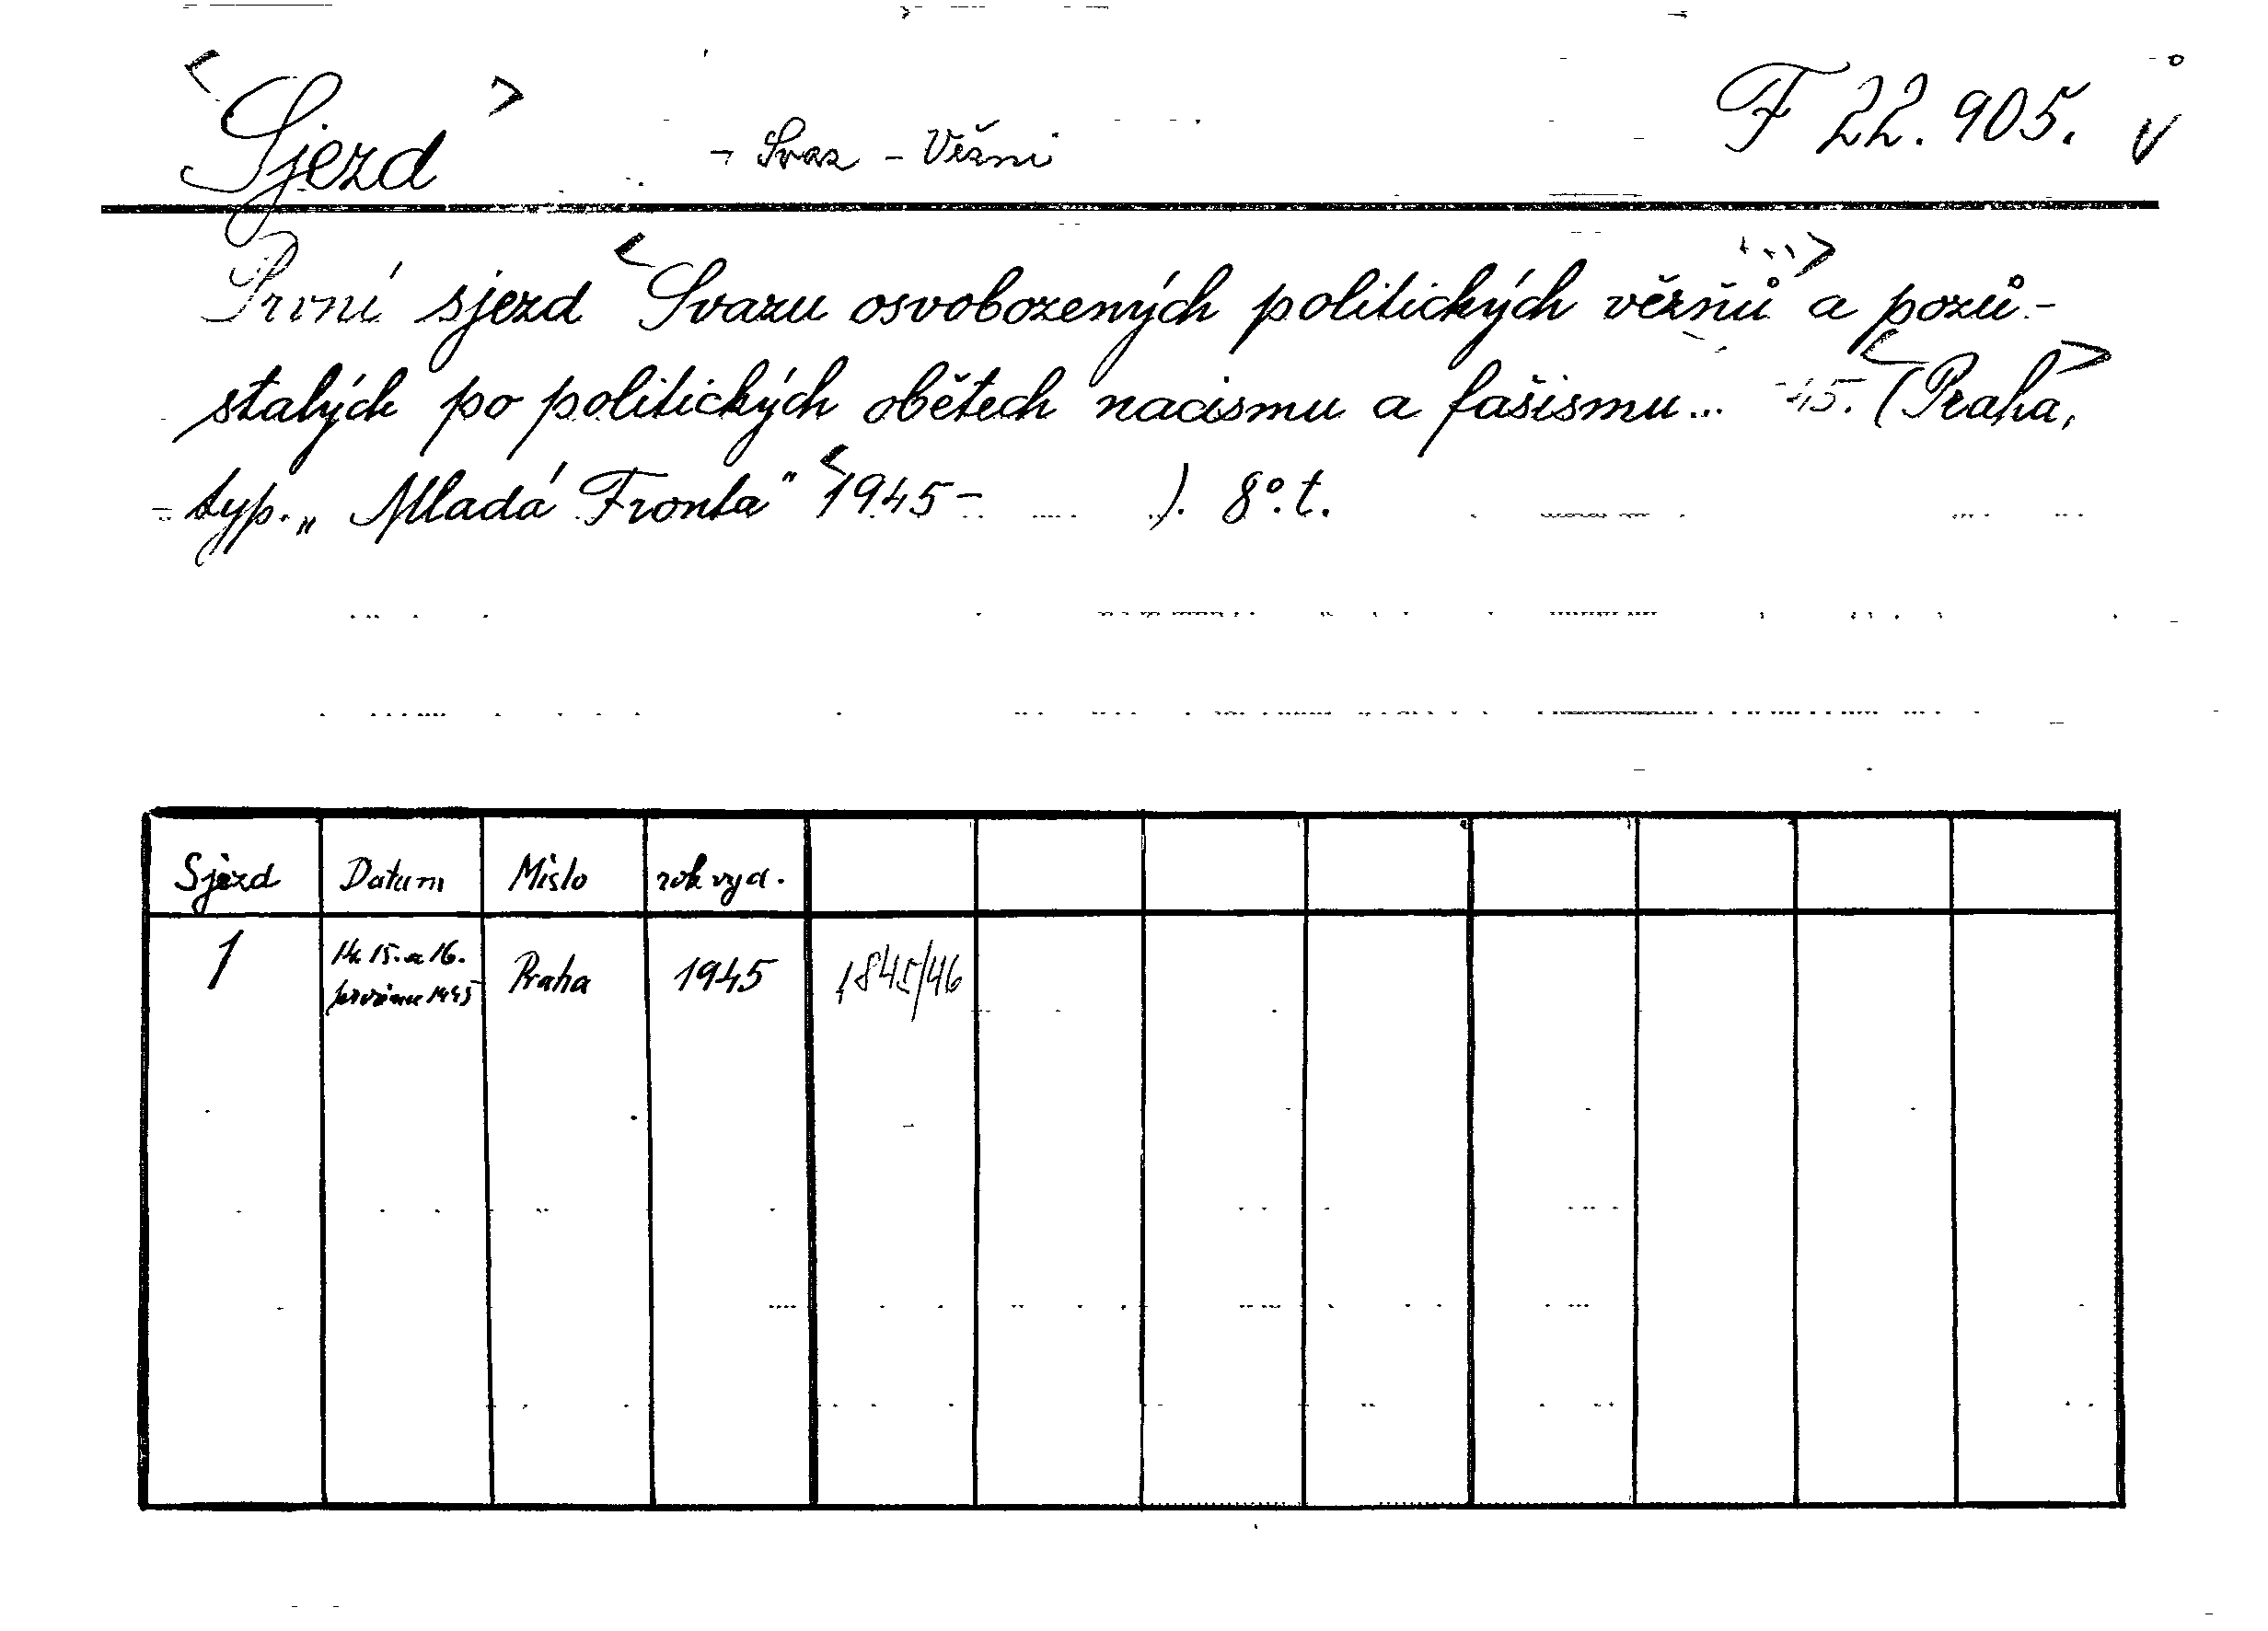 <Sjezd> - Svaz - Vězni F 22.905. v
První sjezd <Svazu osvobozených politických vězňů...> a pozů-
stalých po politických obětech nacismu a fašismu... -45. (<Praha,>
typ. „Mladá Fronta" <1945- ). 8°. t.
Sjezd Datum Místo rok vyd.
1 14. 15. a 16. Praha 1945 1845/46
1945